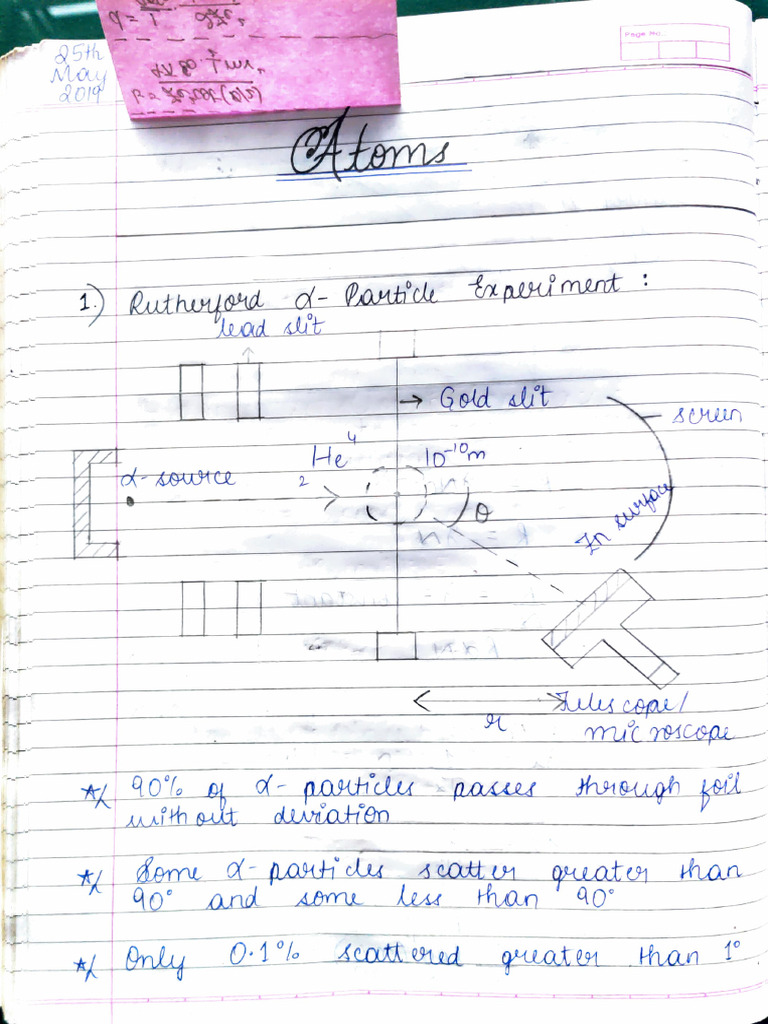 25th
May
2019
Page No.
Atoms
1.) Rutherford α- Particle Experiment :
lead slit
→ Gold slit
screen
₂He⁴
10⁻¹⁰m
α-source
θ
Zn surface
r
Telescope/
microscope
90% of α- particles passes through foil
without deviation
Some α-particles scatter greater than
90° and some less than 90°
Only 0.1% scattered greater than 1°